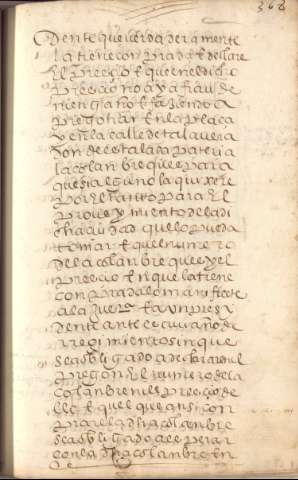 368
Dente que verdaderamente
la tiene conprada E declare
El preçio E que en el dicho
preçio no aya fraude
ni engaño E faziendo a
pregonar En la plaça
E en la calle de talavera
donde esta la dapateria
la colanbre que para
que si alguno la quixere
por El tanto para El
proveymiento de la di
cha çiudad que lo pueda
tomar E que el numero
de la colanbre que e y el
preçio En que la tiene
conprada lo manifieste
a la
dente ante escrivano de
rregimiento sin que
sea obligado a declarar en el
pregon El numero de la
colanbre ni el preçio de
ello E quel que ansi con
prare la dha colanbre
sea obligado a esperar
con la dha colanbre En